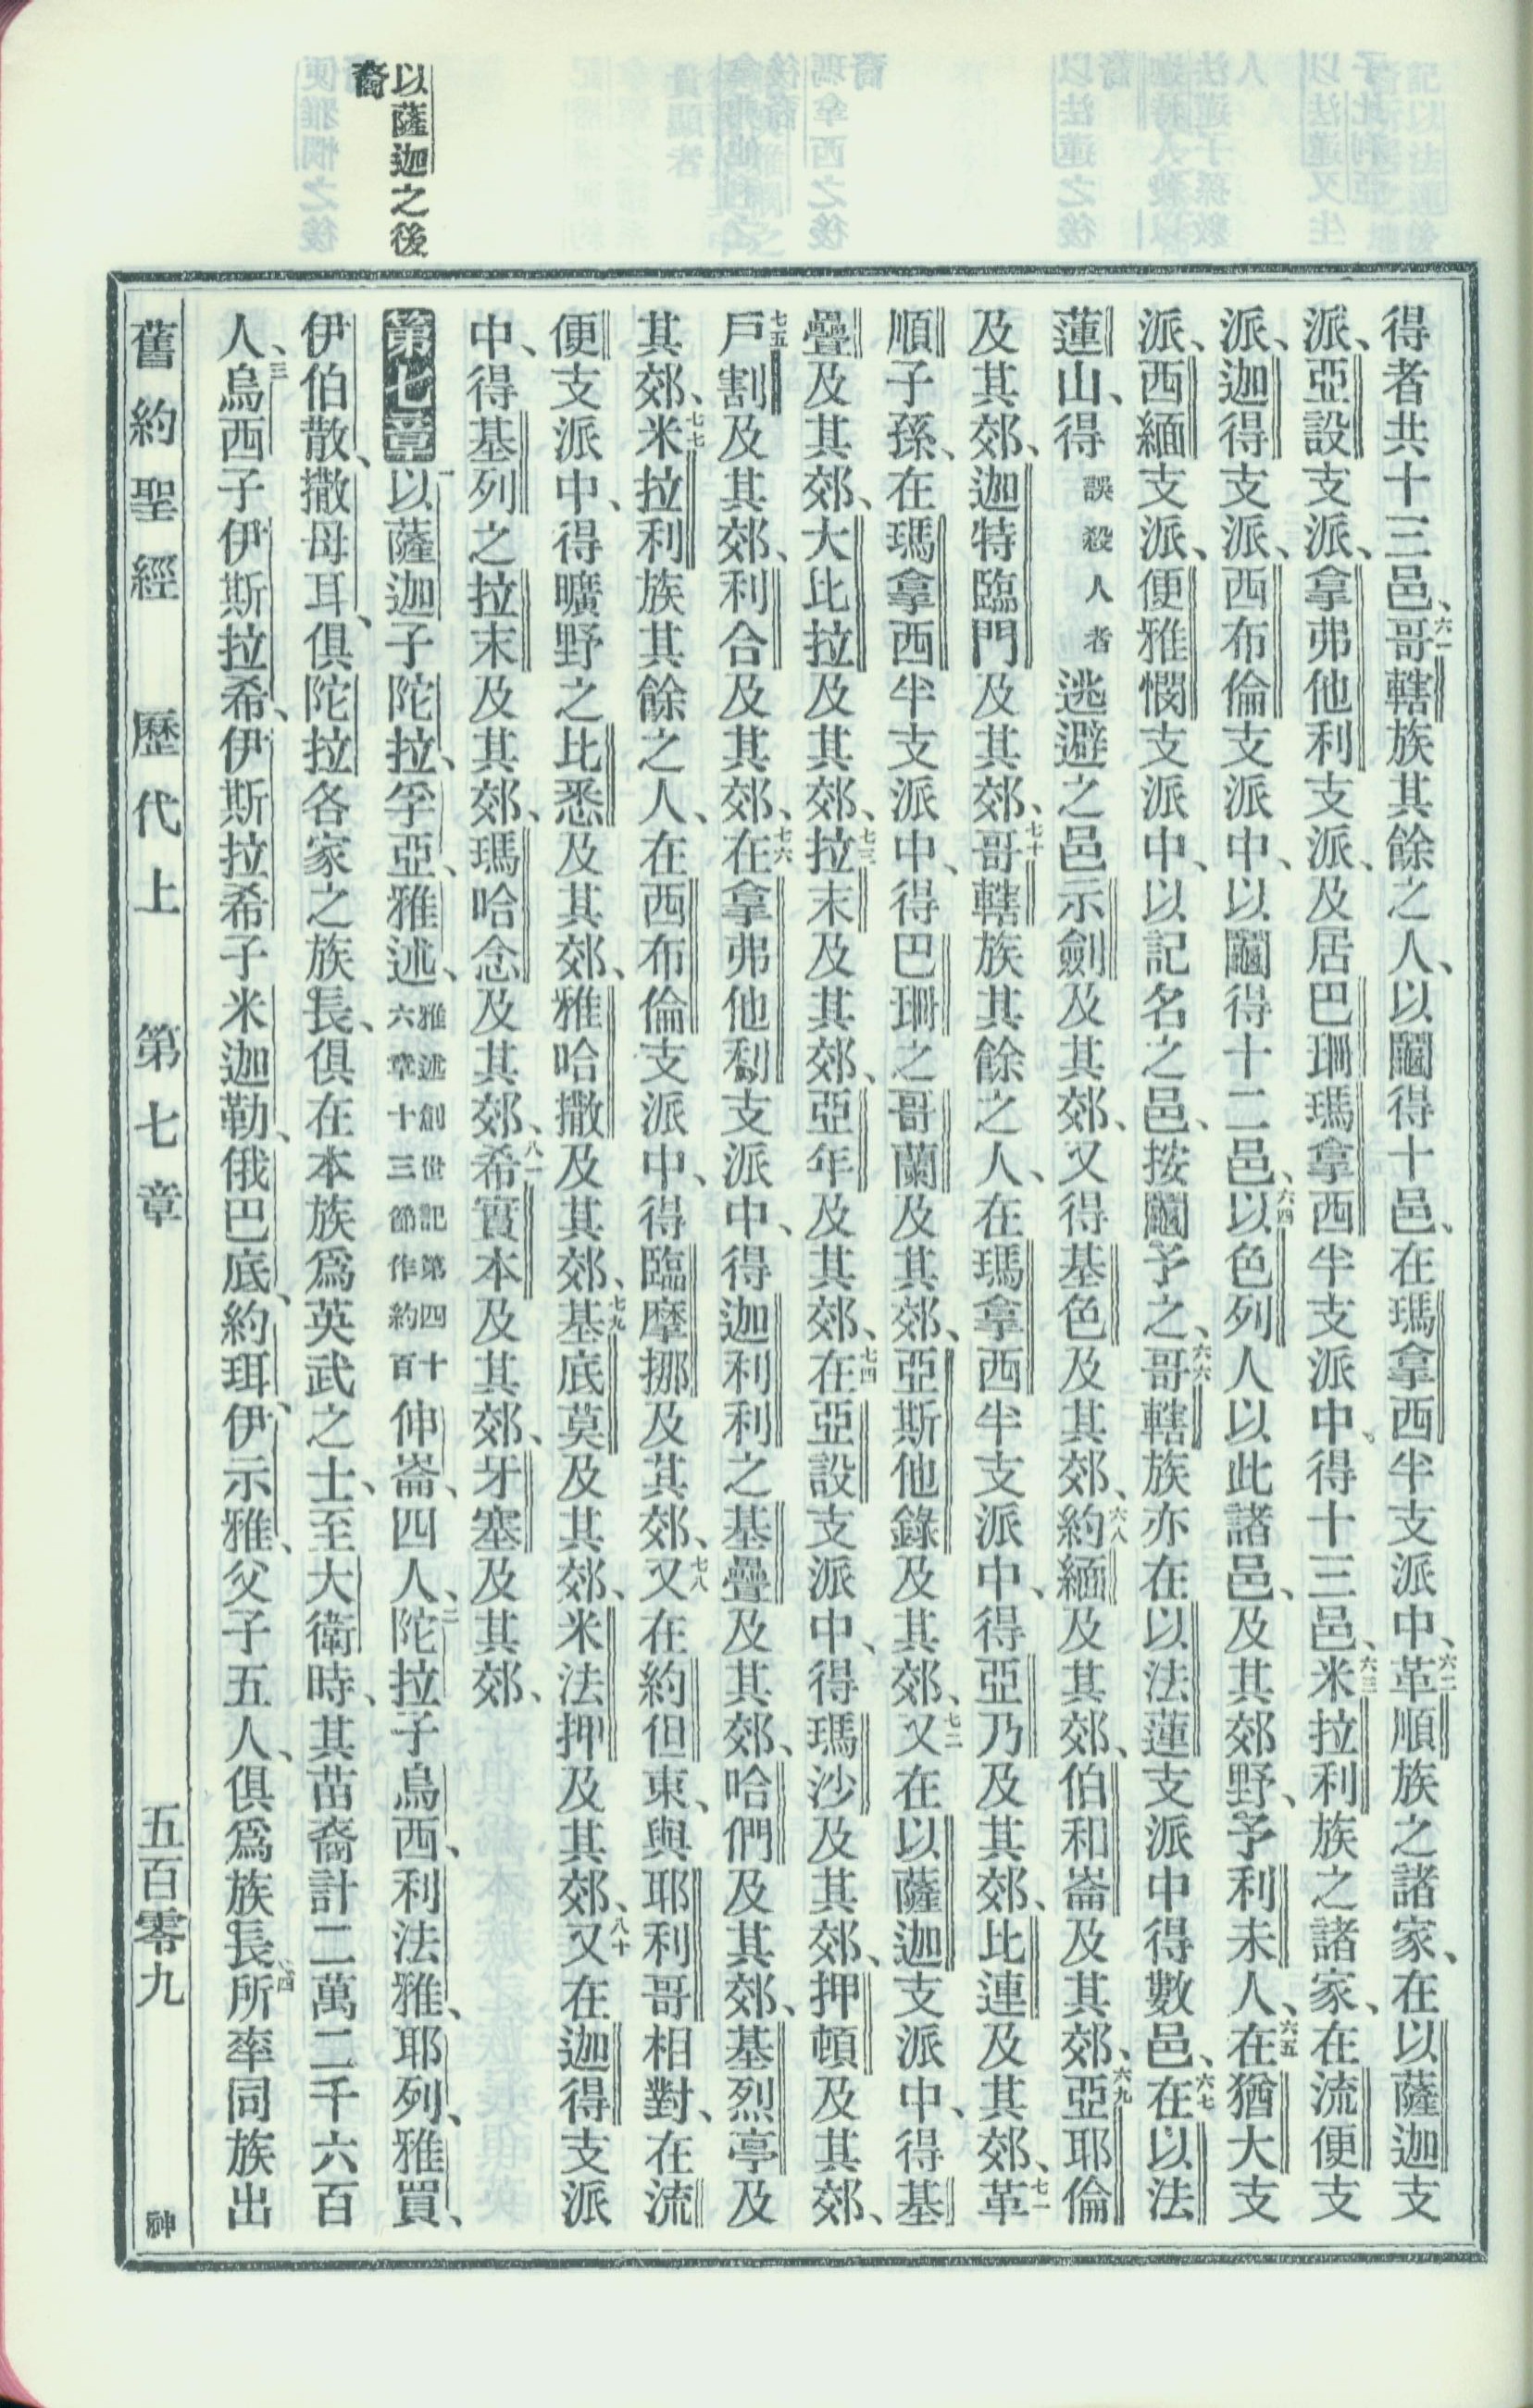 以薩迦之後
裔
得者共十三邑、六一哥轄族其餘之人、以鬮得十邑、在瑪拿西半支派中、六二革順族之諸家、在以薩迦支
派、亞設支派、拿弗他利支派、及居巴珊瑪拿西半支派中、得十三邑、六三米拉利族之諸家、在流便支
派、迦得支派、西布倫支派中、以鬮得十二邑、六四以色列人以此諸邑、及其郊野、予利未人、六五在猶大支
派、西緬支派、便雅憫支派中、以記名之邑、按鬮予之、六六哥轄族亦在以法蓮支派中得數邑、六七在以法
蓮山、得誤殺人者逃避之邑示劍及其郊、又得基色及其郊、六八約緬及其郊、伯和崙及其郊、六九亞耶倫
及其郊、迦特臨門及其郊、七十哥轄族其餘之人、在瑪拿西半支派中、得亞乃及其郊、比連及其郊、七一革
順子孫、在瑪拿西半支派中、得巴珊之哥蘭及其郊、亞斯他錄及其郊、七二又在以薩迦支派中、得基
疊及其郊、大比拉及其郊、七三拉末及其郊、亞年及其郊、七四在亞設支派中、得瑪沙及其郊、押頓及其郊、
七五戶割及其郊、利合及其郊、七六在拿弗他利支派中、得迦利利之基疊及其郊、哈們及其郊、基烈亭及
其郊、七七米拉利族其餘之人、在西布倫支派中、得臨摩挪及其郊、七八又在約但東、與耶利哥相對、在流
便支派中、得曠野之比悉及其郊、雅哈撒及其郊、七九基底莫及其郊、米法押及其郊、八十又在迦得支派
中、得基列之拉末及其郊、瑪哈念及其郊、八一希實本及其郊、牙塞及其郊、
第七章 一以薩迦子陀拉、孚亞、雅述、雅述創世記第四十六章十三節作約百伸崙、四人、二陀拉子烏西、利法雅、耶列、雅買、
伊伯散、撒母耳、俱陀拉各家之族長、俱在本族爲英武之士、至大衛時、其苗裔計二萬二千六百
人、三烏西子伊斯拉希、伊斯拉希子米迦勒、俄巴底、約珥、伊示雅、父子五人、俱爲族長、四所率同族出
舊約聖經 歷代上 第七章 五百零九 神